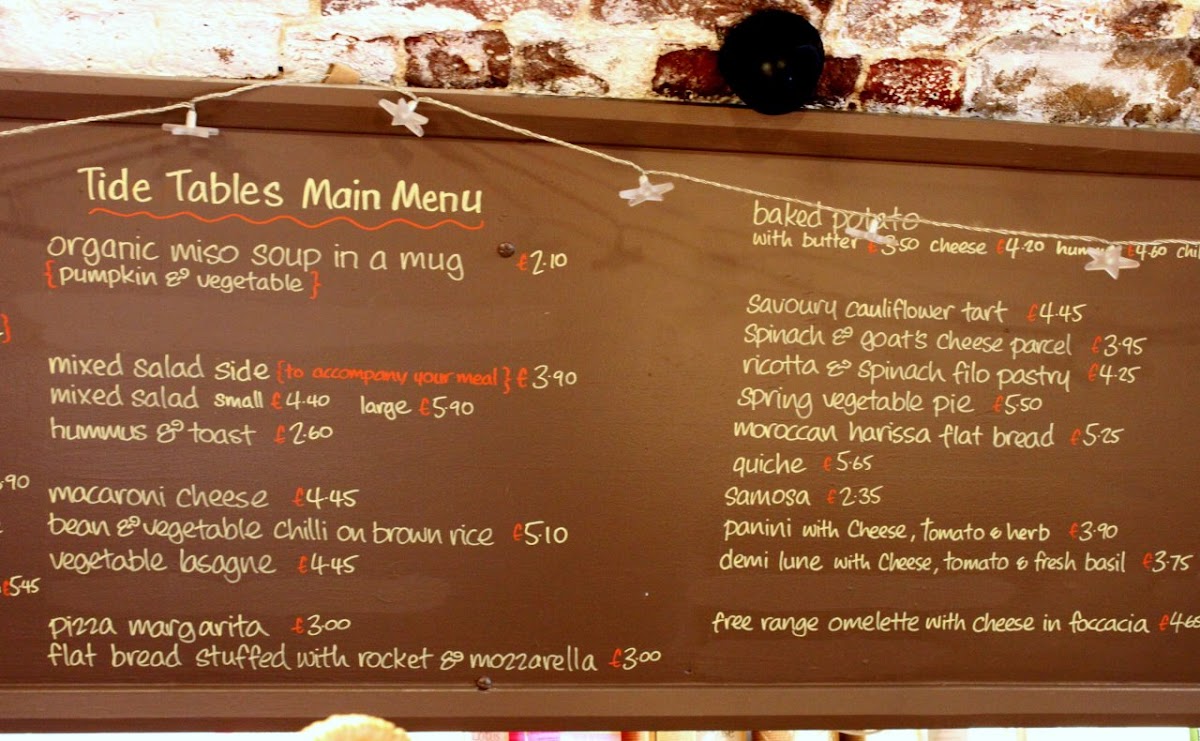 Tide Tables Main Menu
organic miso soup in a mug £2.10
{pumpkin & vegetable}
mixed salad side {to accompany your meal} £3.90
mixed salad small £4.40 large £5.90
hummus & toast £2.60
macaroni cheese £4.45
bean & vegetable chilli on brown rice £5.10
vegetable lasagne £4.45
pizza margarita £3.00
flat bread stuffed with rocket & mozzarella £3.00
}
.90
£5.45
baked potato
with butter £3.50 cheese £4.20 £4.60
savoury cauliflower tart £4.45
spinach & goat's cheese parcel £3.95
ricotta & spinach filo pastry £4.25
spring vegetable pie £5.50
moroccan harissa flat bread £5.25
quiche £5.65
samosa £2.35
panini with Cheese, Tomato & herb £3.90
demi lune with Cheese, tomato & fresh basil £3.75
free range omelette with cheese in foccacia